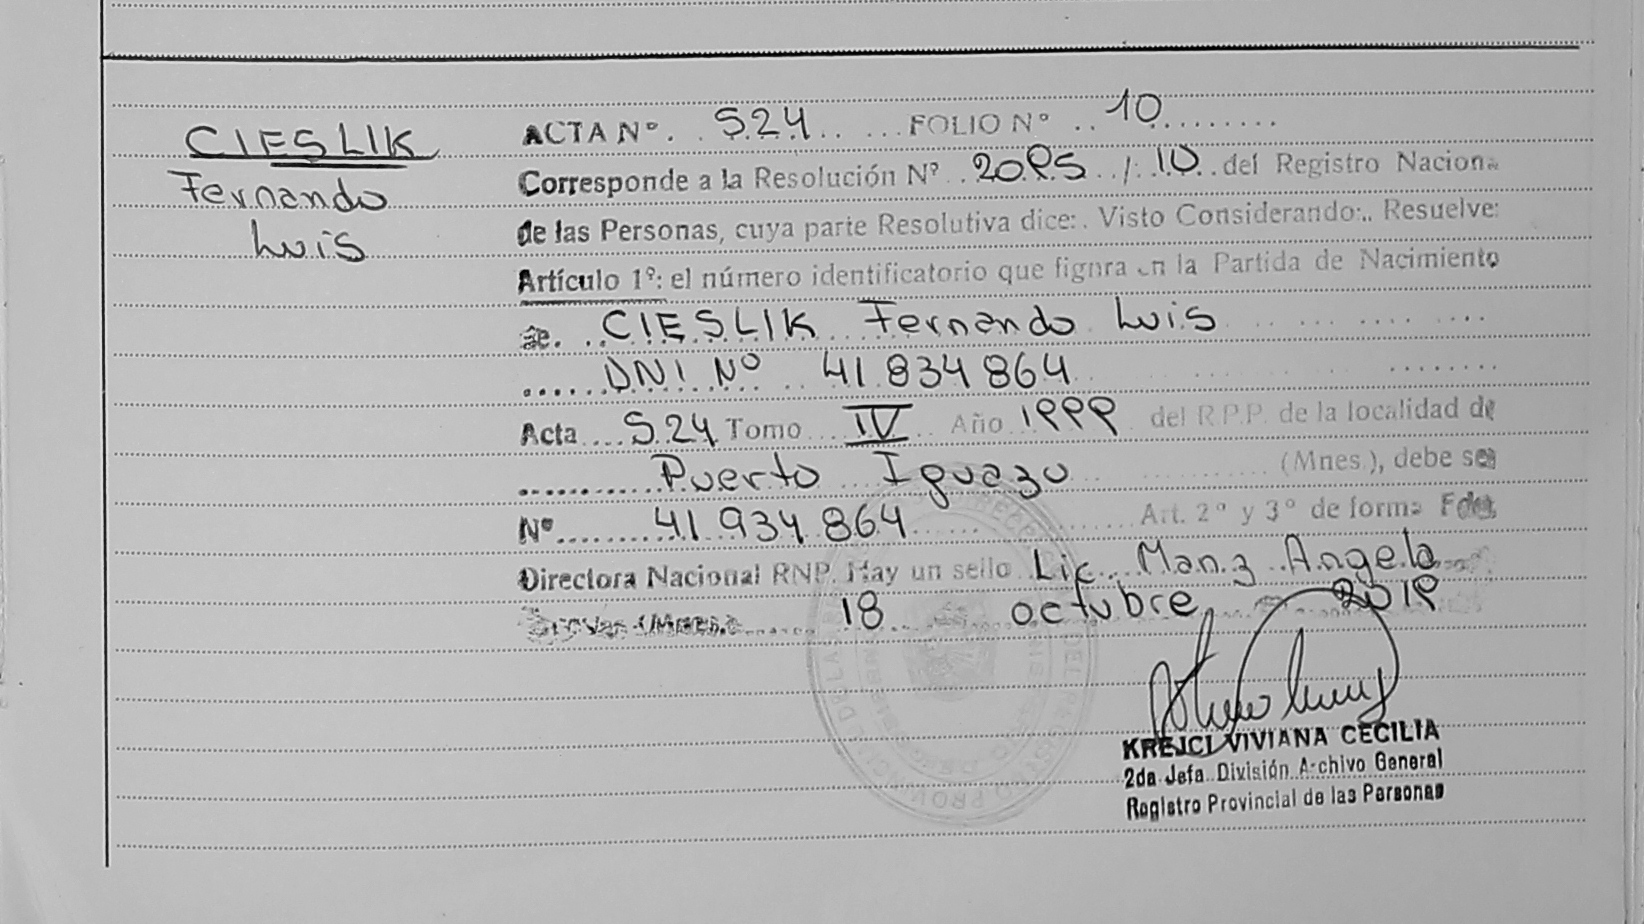 CIESLIK
Fernando
Luis
ACTA Nº. 524 FOLIO Nº 10
Corresponde a la Resolución Nº 2095 / 10 del Registro Naciona
de las Personas, cuya parte Resolutiva dice: Visto Considerando: Resuelve:
Artículo 1º: el número identificatorio que figura en la Partida de Nacimiento
de. CIESLIK Fernando Luis
DNI Nº 41 834 864
Acta 524 Tomo IV Año 1999 del R.P.P. de la localidad de
Puerto Iguazu
(Mnes.), debe ser
Nº 41.934.864 Art. 2º y 3º de forma Fdo.
Directora Nacional RNP. Hay un sello Lic. Angela
18 octubre 2019
KREJCI VIVIANA CECILIA
2da Jefa División Archivo General
Registro Provincial de las Personas